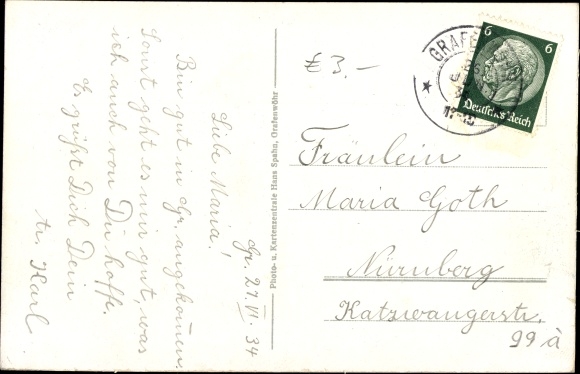 Gr. 27. VI. 34
Liebe Maria!
Bin gut in Gr. angekommen.
Sonst geht es mir gut, was
ich auch von Dir hoffe.
Es grüßt Dich Dein
tr. Karl
Photo- u. Kartenzentrale Hans Spahn, Grafenwöhr
€ 3.-
GRAFE
17-18
6 6
Deutsches Reich
Fräulein
Maria Goth
Nürnberg
Katzwangerstr.
99 à